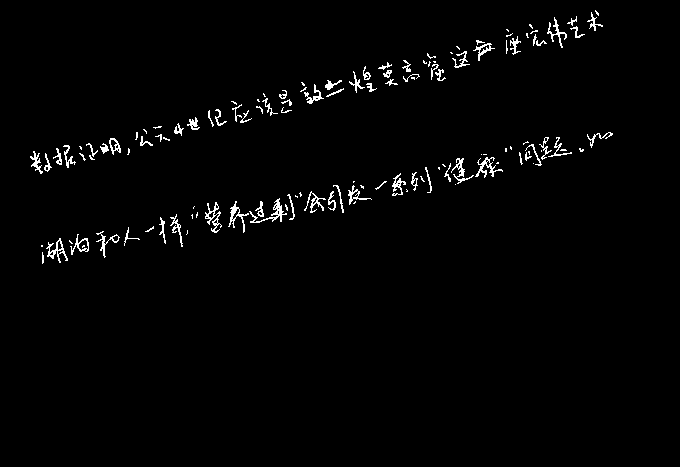 数据证明,公元4世纪应该是敦煌莫高窟这座宏伟艺术
湖泊和人一样,“营养过剩”会引发一系列“健康”问题.如